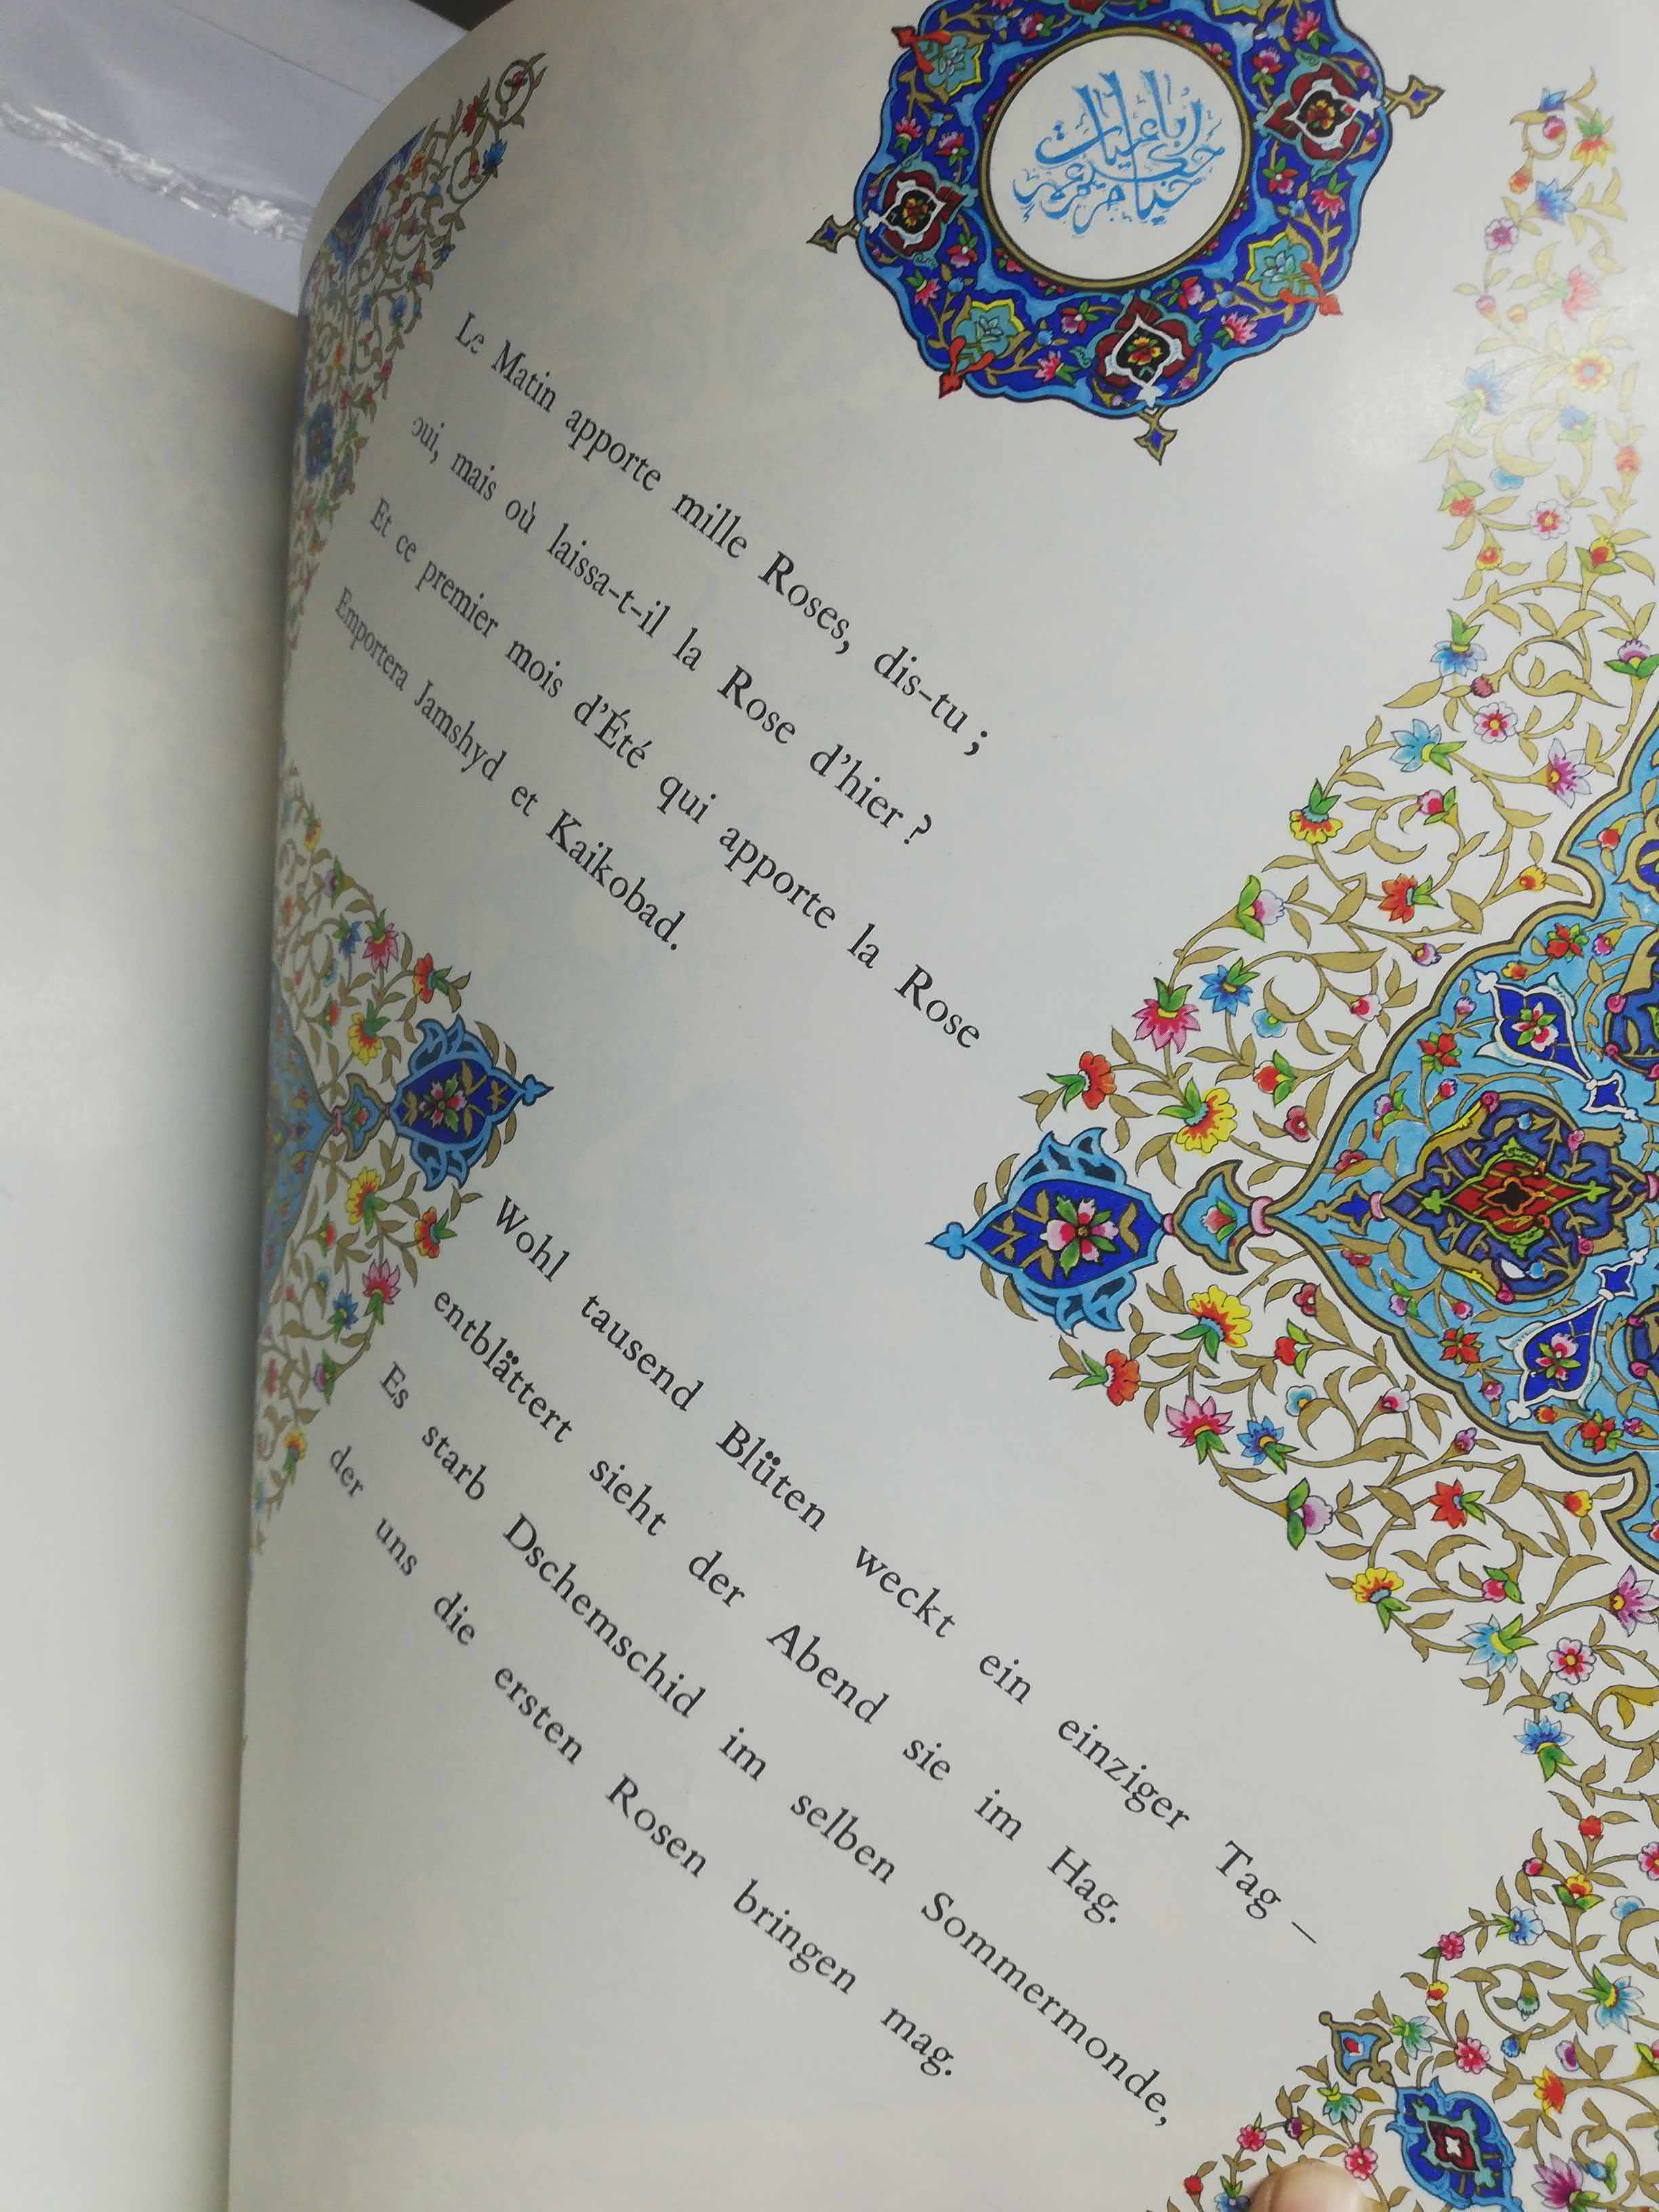 رباعیات
حکیم عمر
خیام
Le Matin apporte mille Roses, dis-tu ;
oui, mais où laissa-t-il la Rose d'hier ?
Et ce premier mois d'Été qui apporte la Rose
Emportera Jamshyd et Kaikobad.
Wohl tausend Blüten weckt ein einziger Tag –
entblättert sieht der Abend sie im Hag.
Es starb Dschemschid im selben Sommermonde,
der uns die ersten Rosen bringen mag.